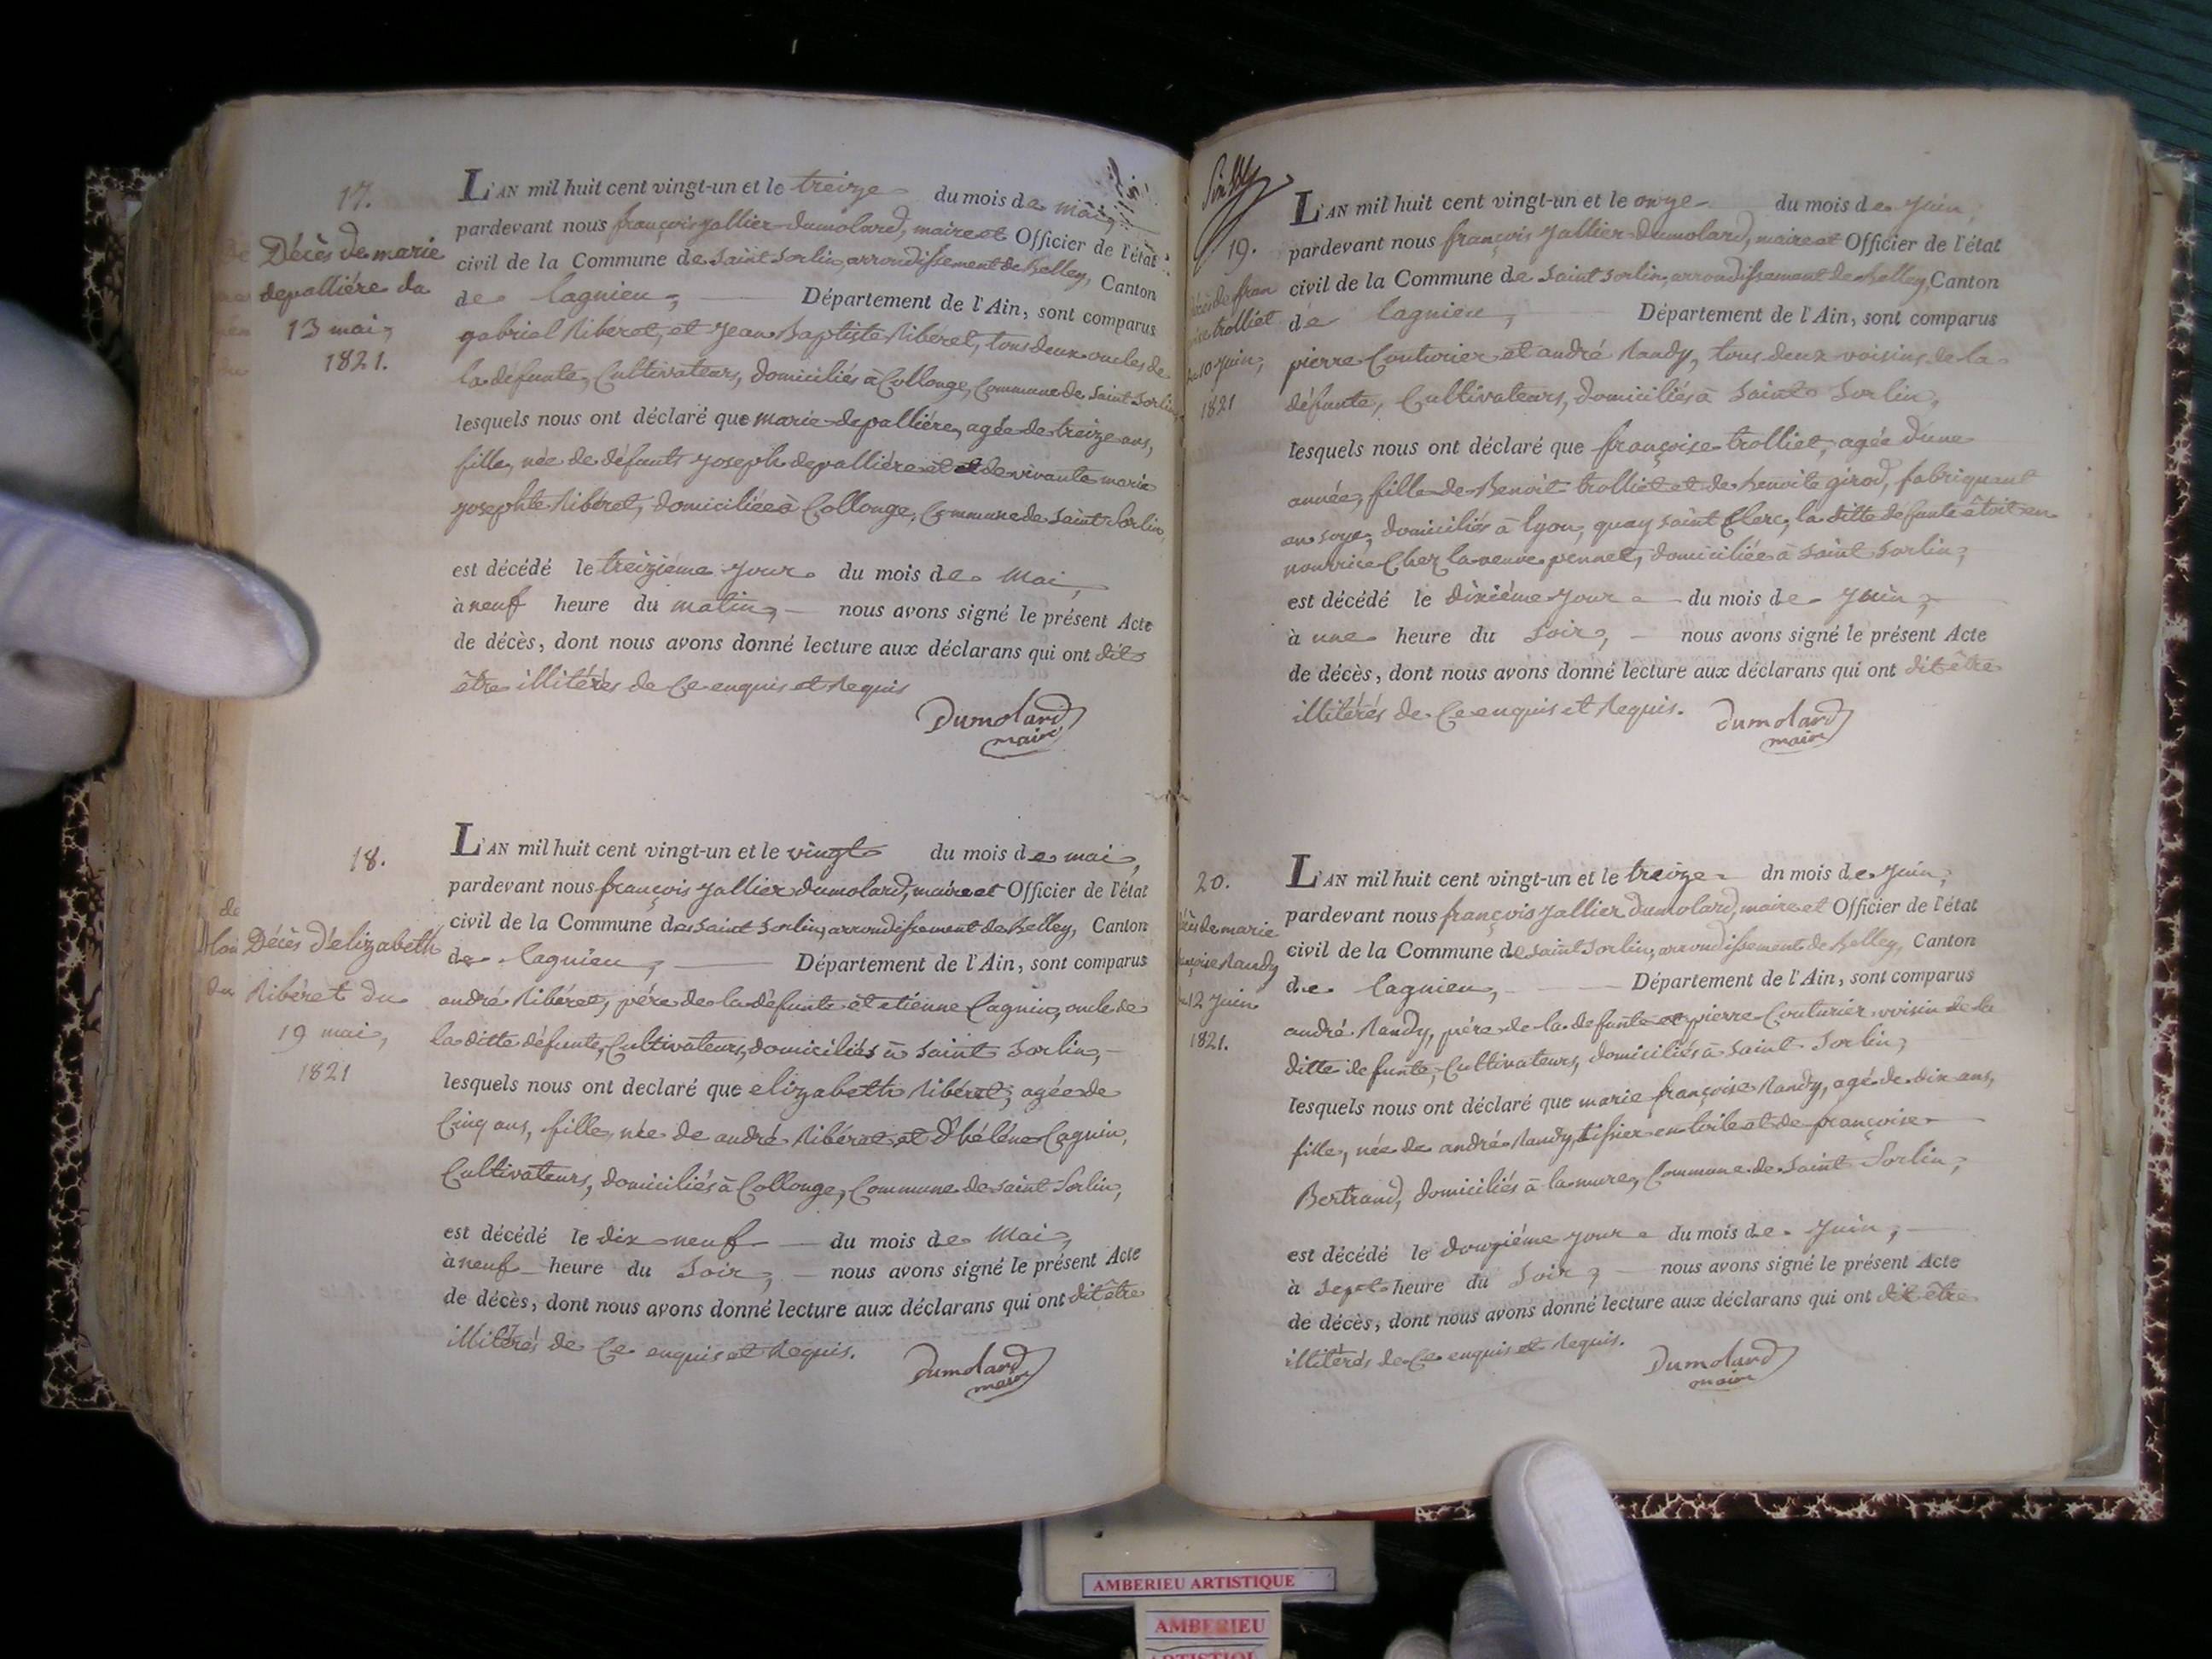 17.
Décès de marie
depalliére du
13 mai,
1821.
L'AN mil huit cent vingt-un et le treize du mois de mai,
pardevant nous françois jallier-dumolard, maire et Officier de l'état
civil de la Commune de saint sorlin, arrondissement de belley, Canton
de lagnieu, Département de l'Ain, sont comparus
gabriel Ribéret, et jean baptiste Ribéret, tous deux oncles de
la défunte, Cultivateurs, domiciliés à Collonge, Commune de saint sorlin,
lesquels nous ont déclaré que marie depalliére, agée de treize ans,
fille, née de défunts joseph depalliére et de vivante marie
josephte Ribéret, domiciliée à Collonge, Commune de saint Sorlin,
est décédé le treiziéme jour du mois de mai,
à neuf heure du matin, nous avons signé le présent Acte
de décès, dont nous avons donné lecture aux déclarans qui ont dit
être illitérés de Ce enquis et Requis
Dumolard
maire
18.
Décès d'elizabeth
Ribéret du
19 mai,
1821
L'AN mil huit cent vingt-un et le vingt du mois de mai,
pardevant nous françois jallier dumolard, maire et Officier de l'état
civil de la Commune de saint sorlin, arrondissement de belley, Canton
de lagnieu, Département de l'Ain, sont comparus
andré Ribéret, pére de la défunte et etienne Cagnin, oncle de
la ditte défunte, Cultivateurs, domiciliés à saint Sorlin,
lesquels nous ont declaré que elizabeth Ribéret, agée de
Cinq ans, fille, née de andré Ribéret et d'héléne Cagnin,
Cultivateurs, domiciliés à Collonge, Commune de saint Sorlin,
est décédé le dix neuf du mois de mai,
à neuf heure du soir, nous avons signé le présent Acte
de décès, dont nous avons donné lecture aux déclarans qui ont dit être
illitérés de Ce enquis et Requis.
Dumolard
maire
19.
Décès de fran
trolliet
10 juin,
1821
L'AN mil huit cent vingt-un et le onze du mois de juin,
pardevant nous françois jallier-dumolard, maire et Officier de l'état
civil de la Commune de saint sorlin, arrondissement de belley, Canton
de lagnieu, Département de l'Ain, sont comparus
pierre Couturier et andré Randy, tous deux voisins de la
défunte, Cultivateurs, domiciliés à saint Sorlin,
lesquels nous ont déclaré que françoise trolliet, agée d'une
année, fille de Benoit trolliet et de benoite girod, fabriquant
en soye, domiciliés à lyon, quay saint Clerc, la ditte défunte étoit en
nourrice Chez la veuve pennet, domiciliée à saint sorlin,
est décédé le dixiéme jour du mois de juin,
à une heure du soir, nous avons signé le présent Acte
de décès, dont nous avons donné lecture aux déclarans qui ont dit être
illitérés de Ce enquis et Requis.
Dumolard
maire
20.
de marie
Randy
12 juin
1821.
L'AN mil huit cent vingt-un et le treize dn mois de juin,
pardevant nous françois jallier dumolard, maire et Officier de l'état
civil de la Commune de saint sorlin, arrondissement de belley, Canton
de lagnieu, Département de l'Ain, sont comparus
andré Randy, pére de la defunte et pierre Couturier voisin de la
ditte defunte, Cultivateurs, domiciliés à saint Sorlin,
lesquels nous ont déclaré que marie françoise Randy, agé de dix ans,
fille, née de andré Randy, tissier en toile et de françoise
Bertrand, domiciliés à la mure, Commune de saint Sorlin,
est décédé le douziéme jour du mois de juin,
à sept heure du soir, nous avons signé le présent Acte
de décès, dont nous avons donné lecture aux déclarans qui ont dit être
illitérés de Ce enquis et Requis.
Dumolard
maire
AMBERIEU ARTISTIQUE
AMBERIEU
ARTISTIQUE